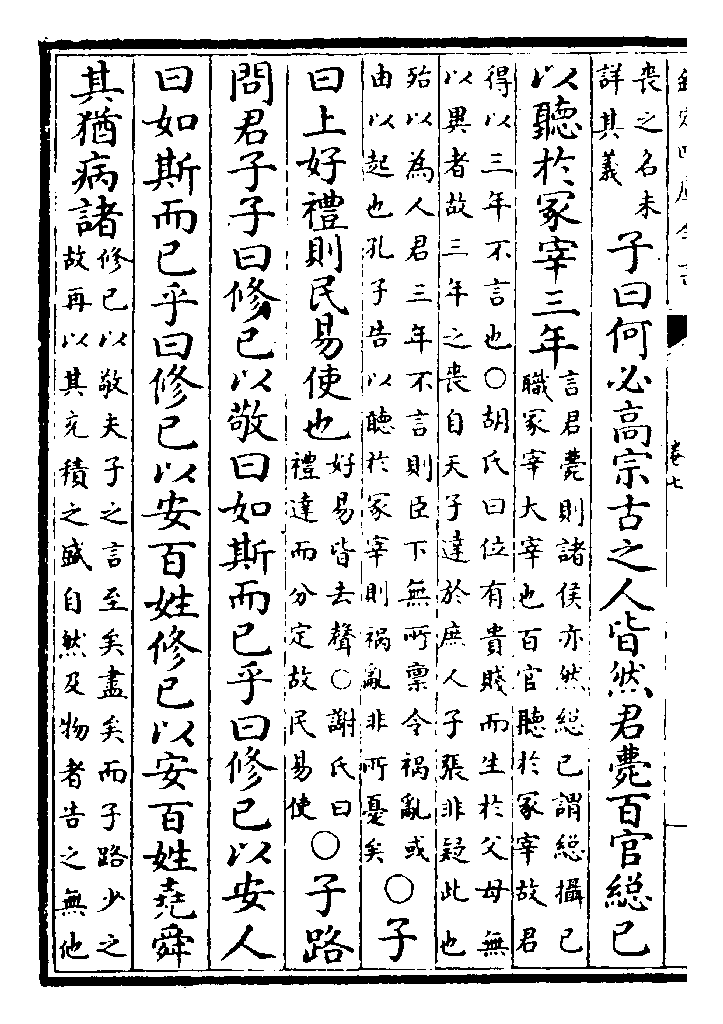 欽定四庫全書
卷七
喪之名未
詳其義
子曰何必高宗古之人皆然君薨百官緫已
以聽於冢宰三年
言君薨則諸侯亦然緫已謂緫攝已
職冢宰大宰也百官聽於冢宰故君
得以三年不言也○胡氏曰位有貴賤而生於父母無
以異者故三年之喪自天子達於庶人子張非疑此也
殆以為人君三年不言則臣下無所禀令禍亂或
由以起也孔子告以聽於冢宰則禍亂非所憂矣
○子
曰上好禮則民易使也
好易皆去聲○謝氏曰
禮達而分定故民易使
○子路
問君子子曰修已以敬曰如斯而已乎曰修已以安人
曰如斯而已乎曰修已以安百姓修已以安百姓堯舜
其猶病諸
修已以敬夫子之言至矣盡矣而子路少之
故再以其充積之盛自然及物者告之無他